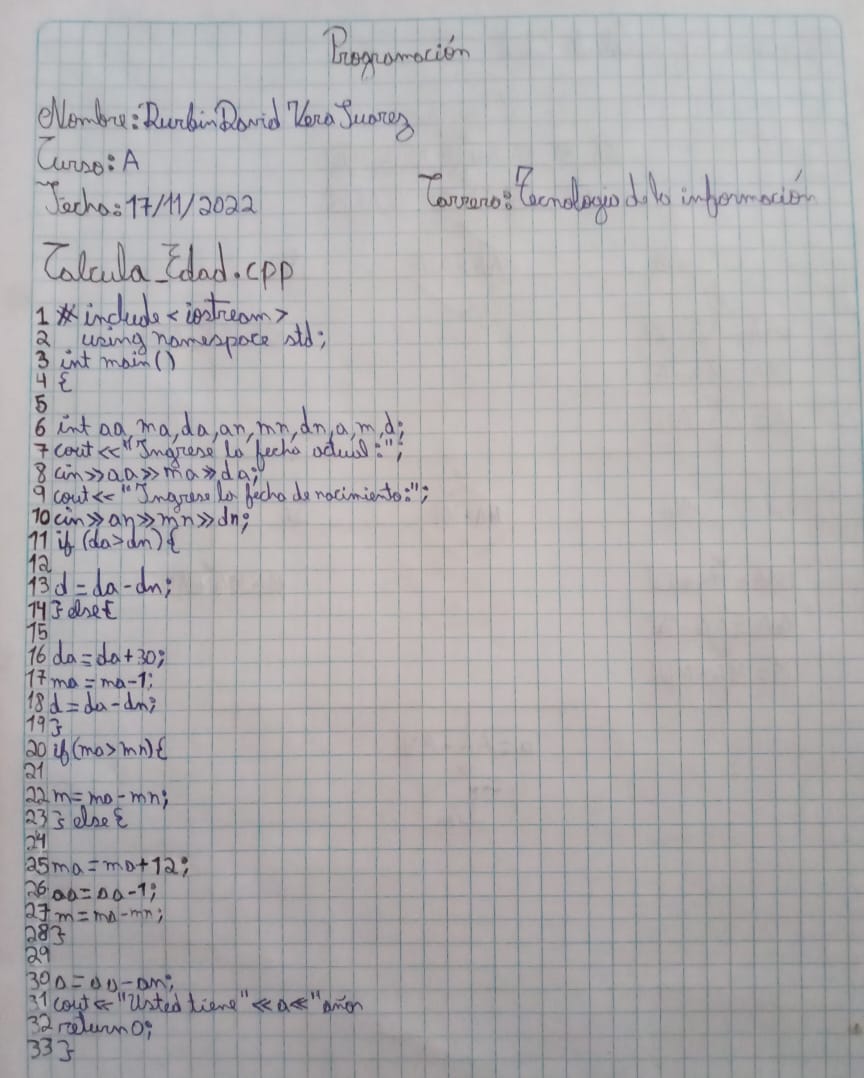 Programación
Nombre: Durbin David Vera Suarez
Curso: A
Fecha: 17/11/2022
Carrera: Tecnologia de la información
Calcula_Edad.cpp
1 # include < iostream >
2 using namespace std;
3 int main()
4 {
5
6 int aa, ma, da, an, mn, dn, a, m, d;
7 cout << "Ingrese la fecha actual:";
8 cin >> aa >> ma >> da;
9 cout << "Ingrese la fecha de nacimiento:";
10 cin >> an >> mn >> dn;
11 if (da > dn) {
12
13 d = da - dn;
14 } else {
15
16 da = da + 30;
17 ma = ma - 1;
18 d = da - dn;
19 }
20 if (ma > mn) {
21
22 m = ma - mn;
23 } else {
24
25 ma = ma + 12;
26 aa = aa - 1;
27 m = ma - mn;
28 }
29
30 a = aa - an;
31 cout << "Usted tiene" << a << "años
32 return 0;
33 }